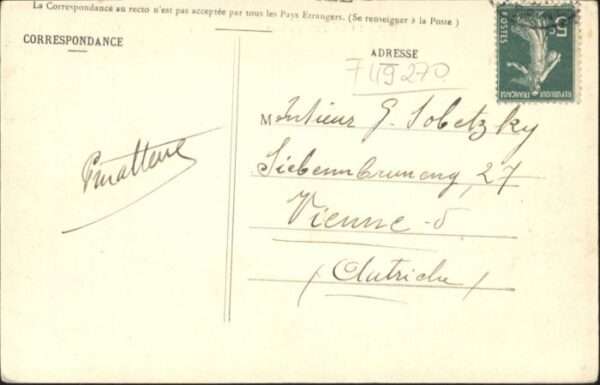 La Correspondance au recto n'est pas acceptée par tous les Pays Etrangers. (Se renseigner à la Poste)
CORRESPONDANCE
ADRESSE
749270
Monsieur G. Sobetzky
27
Vienne
(Autriche)
5c
POSTES
REPUBLIQUE FRANÇAISE